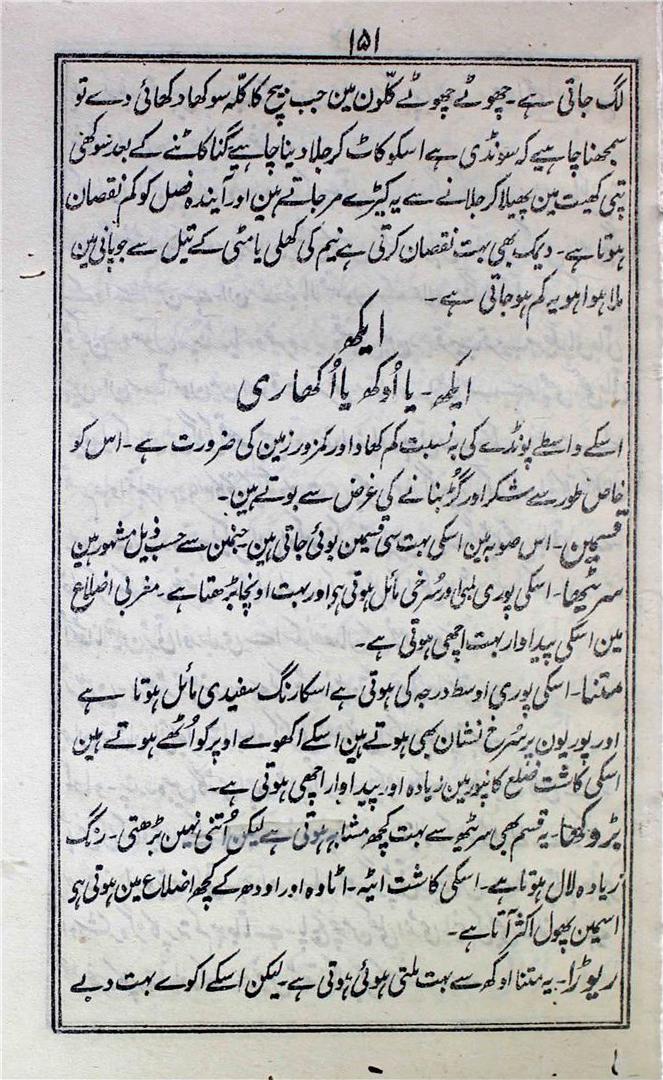 ۱۵۱
لگ جاتی ہے۔ چھوٹے چھوٹے کلّون مین جب بیچ کا کلّہ سوکھا دکھائی دے تو
سمجھنا چاہیے کہ سونڈی ہے اسکو کاٹ کر جلا دینا چاہیے گنا کاٹنے کے بعد سوکھی
پتی کھیت مین پھیلا کر جلانے سے یہ کیڑے مر جاتے ہین اور آیندہ فصل کو کم نقصان
ہوتا ہے۔ دیمک بھی بہت نقصان کرتی ہے نیم کی کھلی یا مٹی کے تیل سے جو پانی مین
ملا ہوا ہو یہ کم ہو جاتی ہے۔
ایکھ
ایکھ۔ یا اُوکھ یا اُکھاری
اسکے واسطے پونڈے کی بہ نسبت کم کھاد اور کمزور زمین کی ضرورت ہے۔ اس کو
خاص طور سے شکر اور گُڑ بنانے کی غرض سے بوتے ہین۔
قسمین۔ اس صوبہ مین اسکی بہت سی قسمین بوئی جاتی ہین۔ جنمین سے حسب ذیل مشہور ہین
سریٹھا۔ اسکی پوری لمبی اور سُرخی مائل ہوتی ہی اور بہت اونچا بڑھتا ہے۔ مغربی اضلاع
مین اسکی پیداوار بہت اچھی ہوتی ہے۔
متنا۔ اسکی پوری اوسط درجہ کی ہوتی ہے اسکا رنگ سفیدی مائل ہوتا ہے
اور پوریون پر سُرخ نشان بھی ہوتے ہین اسکے اکھوے اوپر کو اُٹھے ہوتے ہین
اسکی کاشت ضلع کانپور مین زیادہ اور پیداوار اچھی ہوتی ہے۔
بڑوکھا۔ یہ قسم بھی سریٹھو سے بہت کچھ مشابہ ہوتی ہے لیکن اُتنی نہین بڑھتی۔ رنگ
زیادہ لال ہوتا ہے۔ اسکی کاشت ایٹہ۔ اٹاوہ اور اودھ کے کچھ اضلاع مین ہوتی ہی
اسمین پھول اکثر آتا ہے۔
ریوڑا۔ یہ متنا اوکھ سے بہت ملتی ہوئی ہوتی ہے۔ لیکن اسکے اکوے بہت دبے